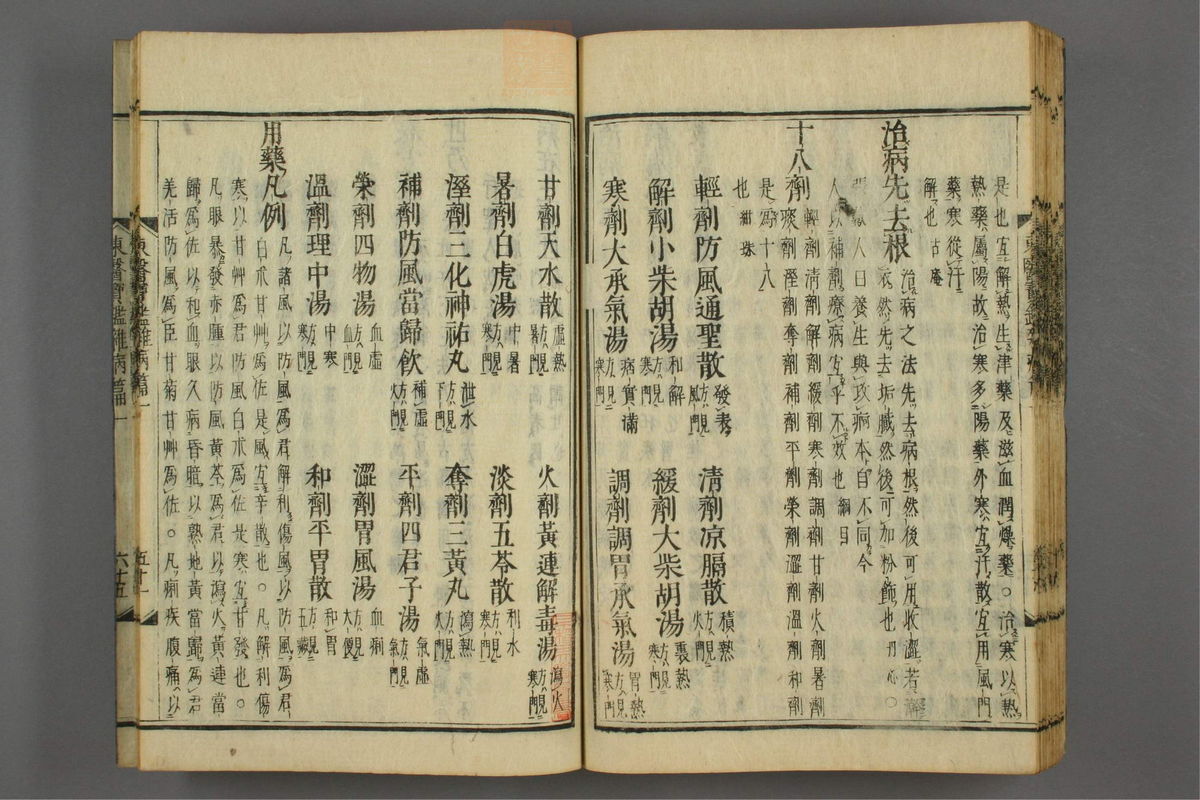 是也宜解熱生津藥及滋血潤燥藥○治寒以熱
熱藥屬陽故治寒多陽藥外寒宜汗散宜用風門
藥寒從汗
解也古庵
治病先去根 治病之法先去病根然後可用收澁若澣
衣然先去垢膩然後可加粉飾也丹心○
人曰養生與攻痾本自不同今
人以補劑療病宜乎不效也綱目
十八劑 輕劑清劑解劑緩劑寒劑調劑甘劑火劑暑劑
淡劑溼劑奪劑補劑平劑榮劑澀劑溫劑和劑
是爲十八
也紺珠
輕劑防風通聖散 發表方見風門 清劑凉膈散 積熱方見火門
解劑小柴胡湯 和解方見寒門 緩劑大柴胡湯 裏熱方見寒門
寒劑大承氣湯 痞實滿方見寒門 調劑調胃承氣湯 胃熱方見寒門
甘劑天水散 虛熱方見暑門 火劑黃連解毒湯 瀉火方見寒門
暑劑白虎湯 中暑方見寒門 淡劑五苓散 利水方見寒門
溼劑三化神祐丸 泄水方見下門 奪劑三黃丸 瀉熱方見火門
補劑防風當歸飮 補虛方見火門 平劑四君子湯 氣虛方見氣門
榮劑四物湯 血虛方見血門 澀劑胃風湯 血痢方見大便
溫劑理中湯 中寒方見寒門 和劑平胃散 和胃方見五臟
用藥凡例 凡諸風以防風爲君解利傷風以防風爲君
白朮甘艸爲佐是風宜辛散也○凡解利傷
寒以甘艸爲君防風白朮爲佐是寒宜甘發也○
凡眼暴發赤腫以防風黃芩爲君以瀉火黃連當
歸爲佐以和血眼久病昏暗以熟地黃當歸爲君
羌活防風爲臣甘菊甘艸爲佐○凡痢疾腹痛以
東醫寶鑑雜病篇一
五十一
六十五